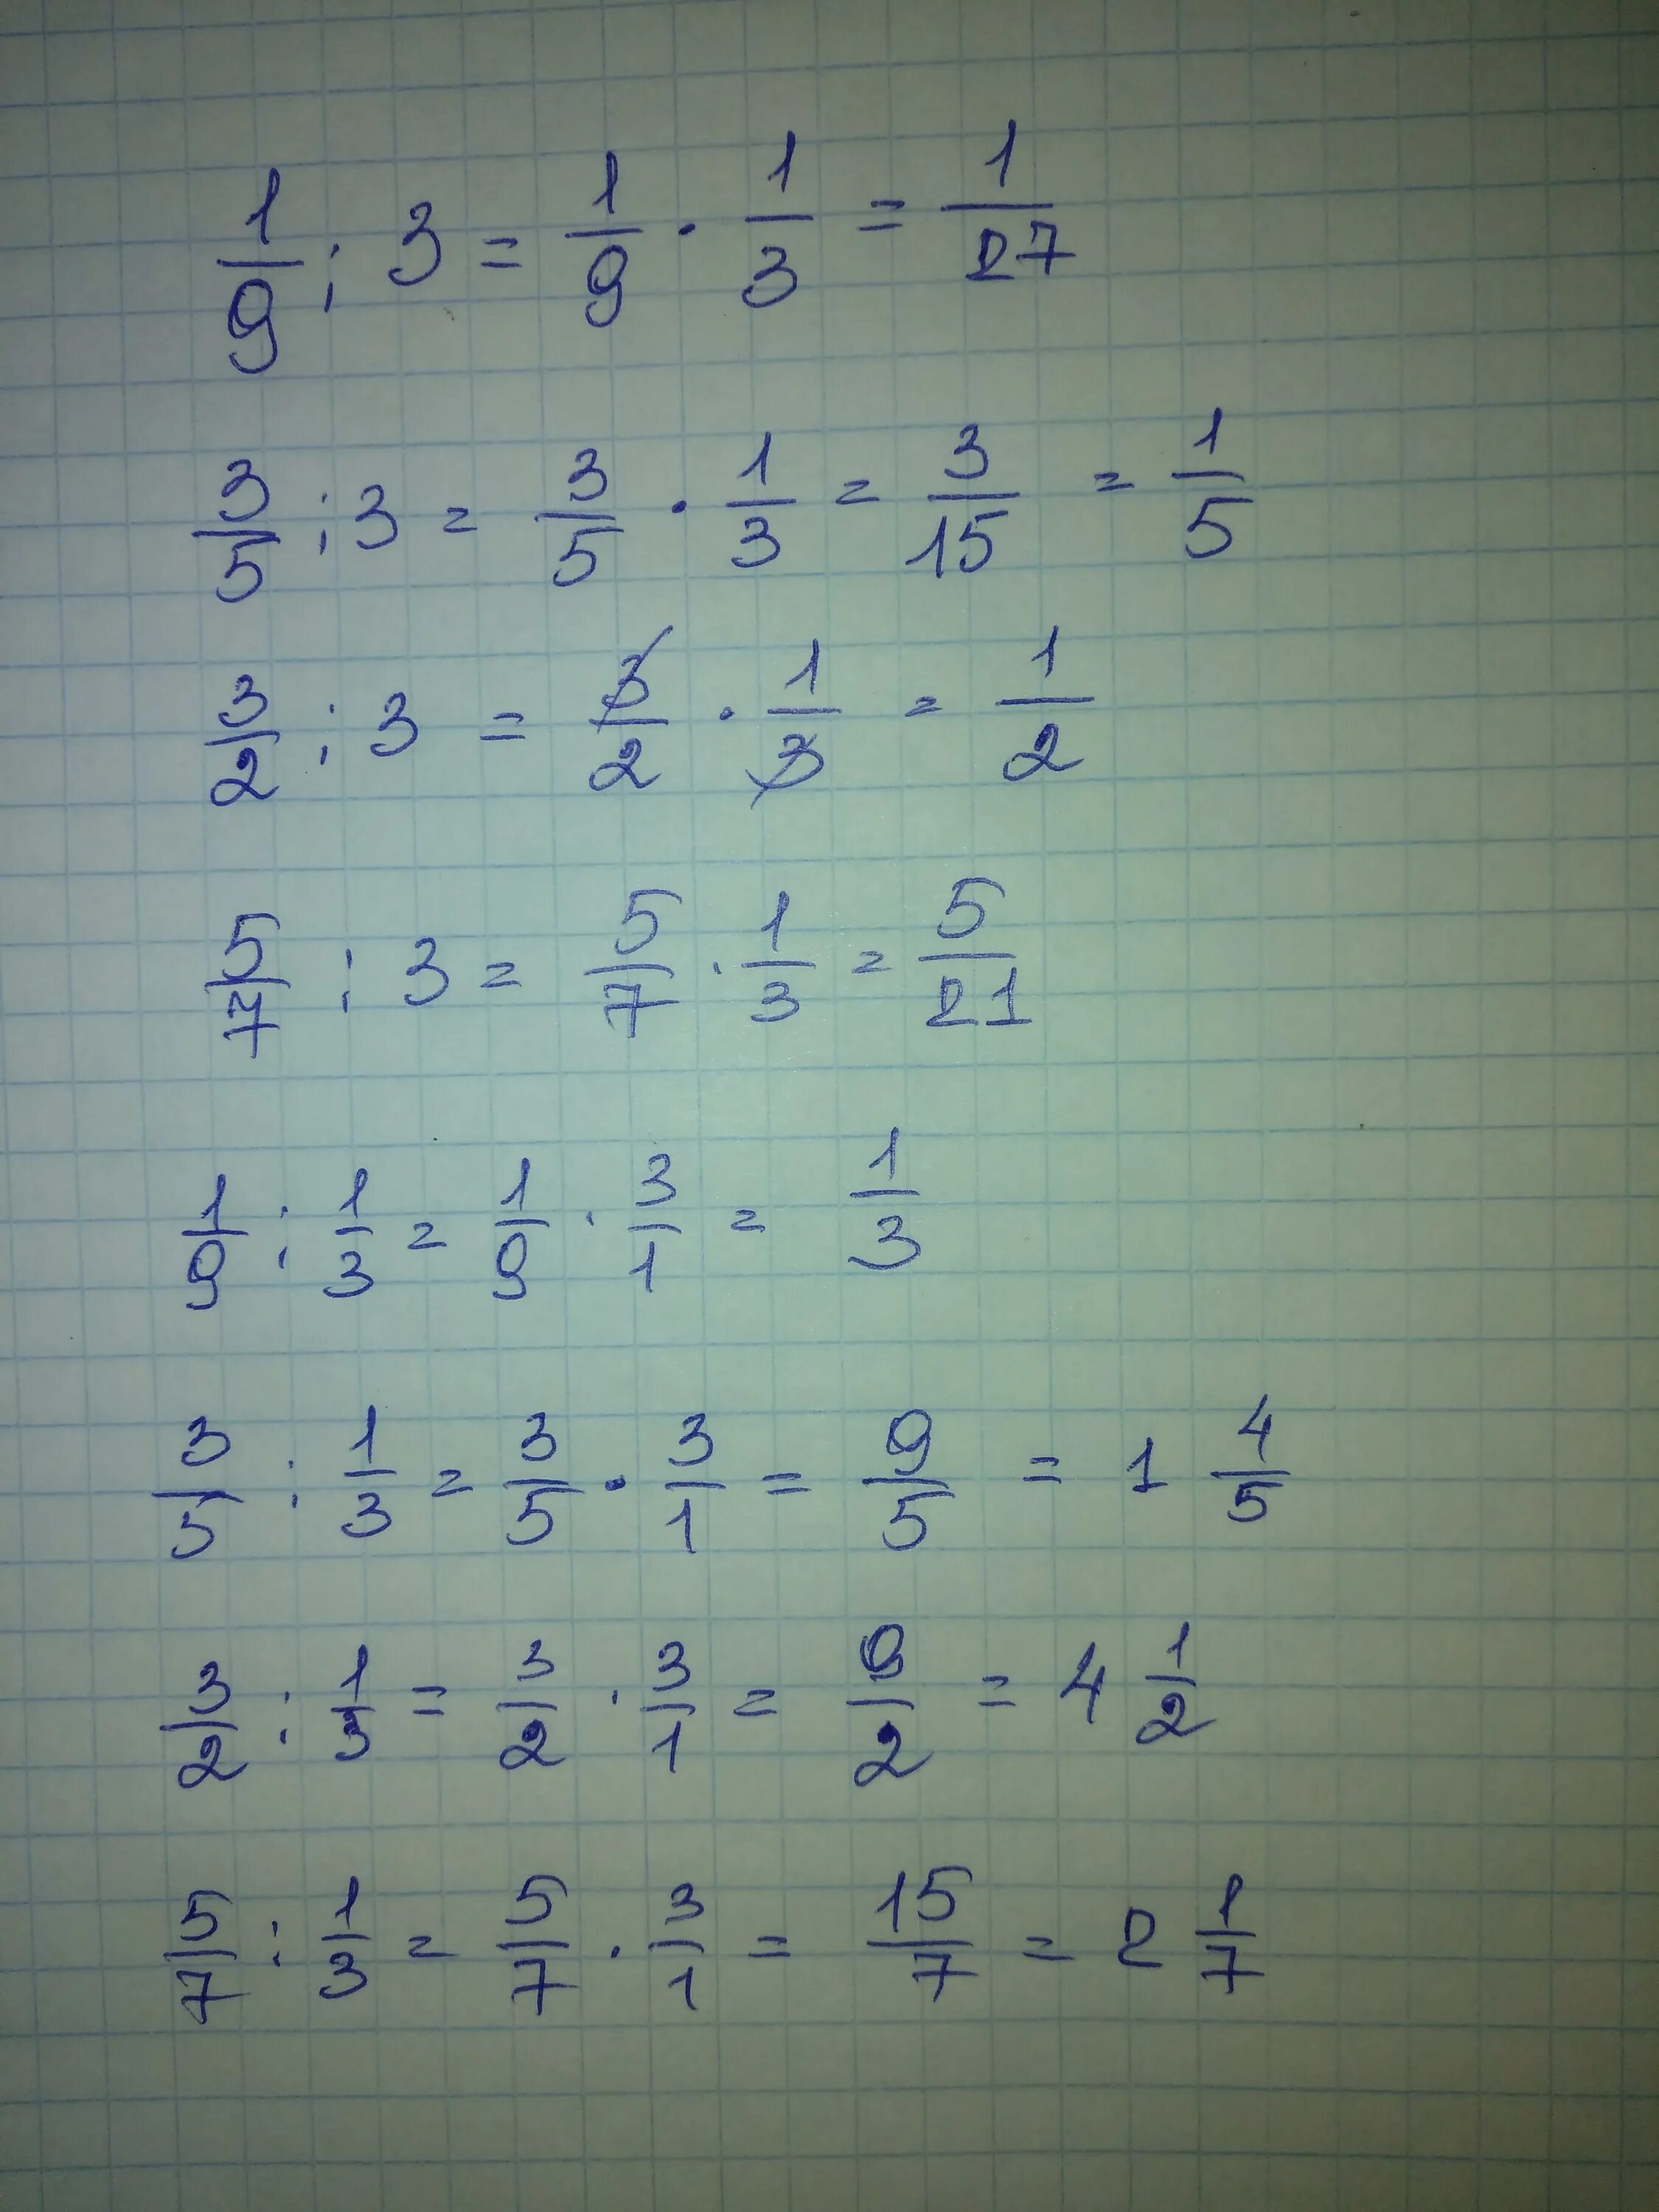 1/9 : 3 = 1/9 · 1/3 = 1/27
3/5 : 3 = 3/5 · 1/3 = 3/15 = 1/5
3/2 : 3 = 3/2 · 1/3 = 1/2
5/7 : 3 = 5/7 · 1/3 = 5/21
1/9 : 1/3 = 1/9 · 3/1 = 1/3
3/5 : 1/3 = 3/5 · 3/1 = 9/5 = 1 4/5
3/2 : 1/3 = 3/2 · 3/1 = 9/2 = 4 1/2
5/7 : 1/3 = 5/7 · 3/1 = 15/7 = 2 1/7